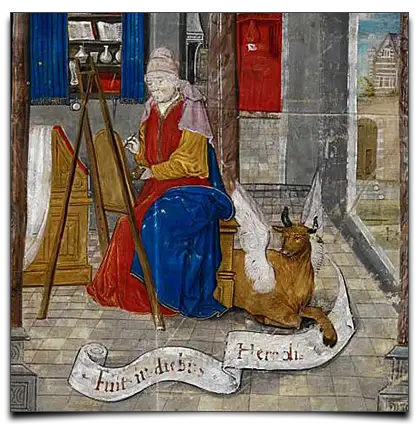 Fuit in diebus Herodis